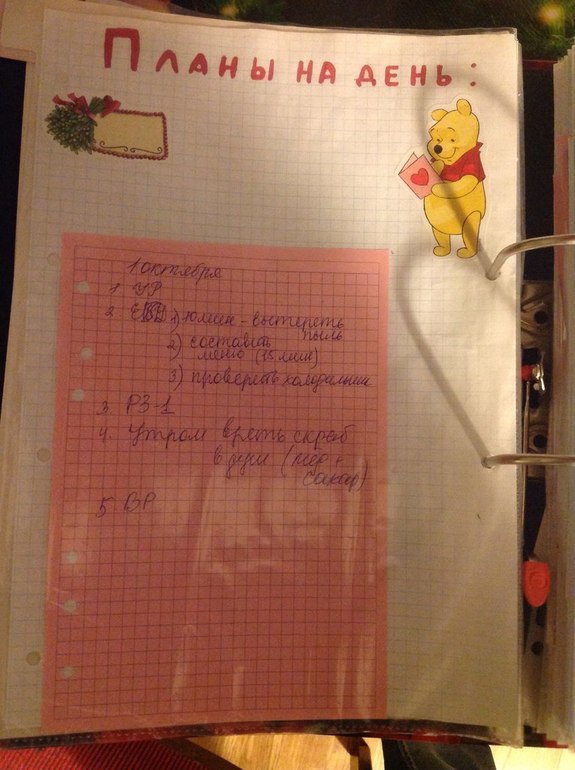 Планы на день:
1 октября
1. УР
2. 1) 10 мин - вытереть
пыль
2) составить
меню (15 мин)
3) проверить холодильник
3. РЗ-1
4. Утром взять скраб
в душ (мёд +
сахар)
5. ВР